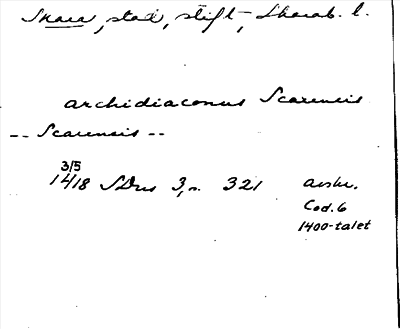 Skara, stad, stift, Skarab. l.
archidiaconus Scarensis
-- Scarensis --
3/5
1418 SDns 3, n. 321 avskr.
Cod. 6
1400-talet